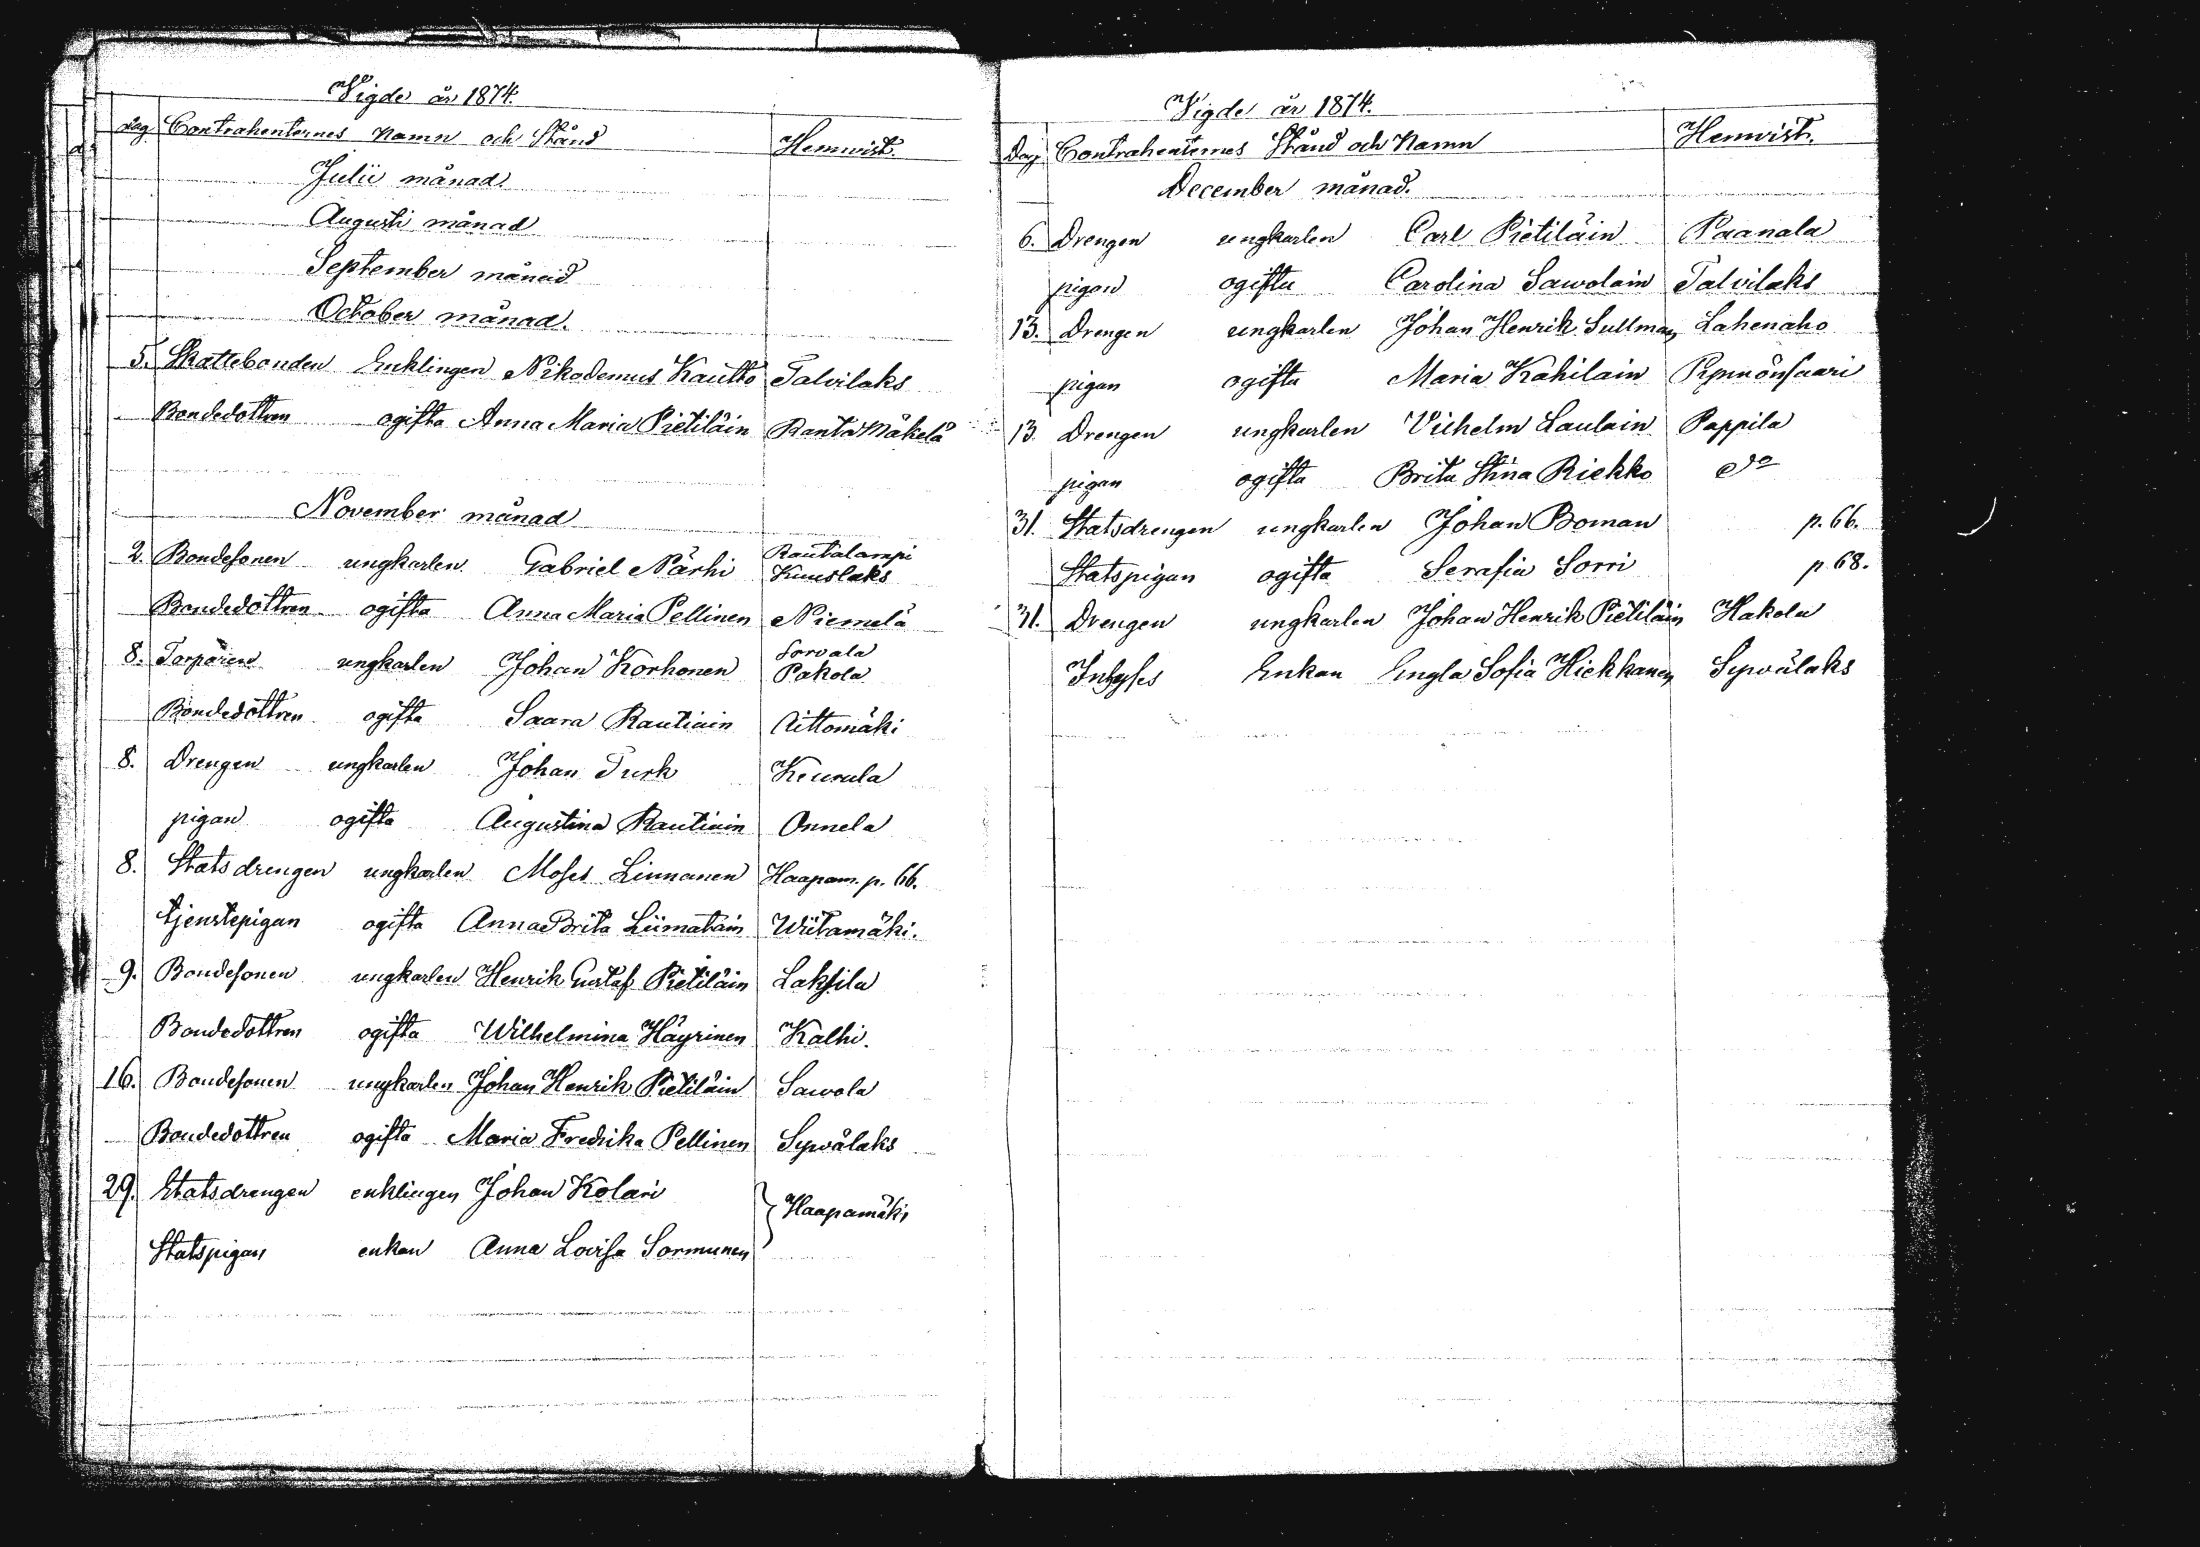 Vigde år 1874.
Dag Contrahenternes Namn och Stånd Hemvist.
Julii månad.
Augusti månad
September månad
October månad.
5. Skattebonden Enklingen Nikodemus Kautto Talvilaks
Bondedottren ogifta Anna Maria Pietiläin Ranta Mäkelä
November månad
2. Bondesonen ungkarlen Gabriel Närhi Rautalampi Kuuslaks
Bondedottren ogifta Anna Maria Pellinen Niemelä
8. Torparen ungkarlen Johan Korhonen Sorvala Pakola
Bondedottren ogifta Saara Rautiain Aittomäki
8. Drengen ungkarlen Johan Turk Keurula
pigan ogifta Augustina Rautiain Onnela
8. Statsdrengen ungkarlen Moses Linnanen Haapam. p. 66.
tjenstepigan ogifta Anna Brita Liimatain Wiitamäki.
9. Bondesonen ungkarlen Henrik Gustaf Pietiläin Laksila
Bondedottren ogifta Wilhelmina Häyrinen Kalhi.
16. Bondesonen ungkarlen Johan Henrik Pietiläin Sawola
Bondedottren ogifta Maria Fredrika Pellinen Sywälaks
29. Statsdrengen enklingen Johan Kolari Haapamäki
Statspigan enkan Anna Lovisa Sormunen
Vigde år 1874.
Dag Contrahenternes Stånd och Namn Hemvist.
December månad.
6. Drengen ungkarlen Carl Pietiläin Paanala
pigan ogifta Carolina Sawolain Talvilaks
13. Drengen ungkarlen Johan Henrik Sullman Lahenaho
pigan ogifta Maria Kähilain
13. Drengen ungkarlen Vilhelm Laulain Pappila
pigan ogifta Brita Stina Riekko do
31. Statsdrengen ungkarlen Johan Boman p. 66.
Statspigan ogifta Serafia Sorri p. 68.
31. Drengen ungkarlen Johan Henrik Pietiläin Hakola
Inhyses Enkan Engla Sofia Hiekkanen Sywälaks